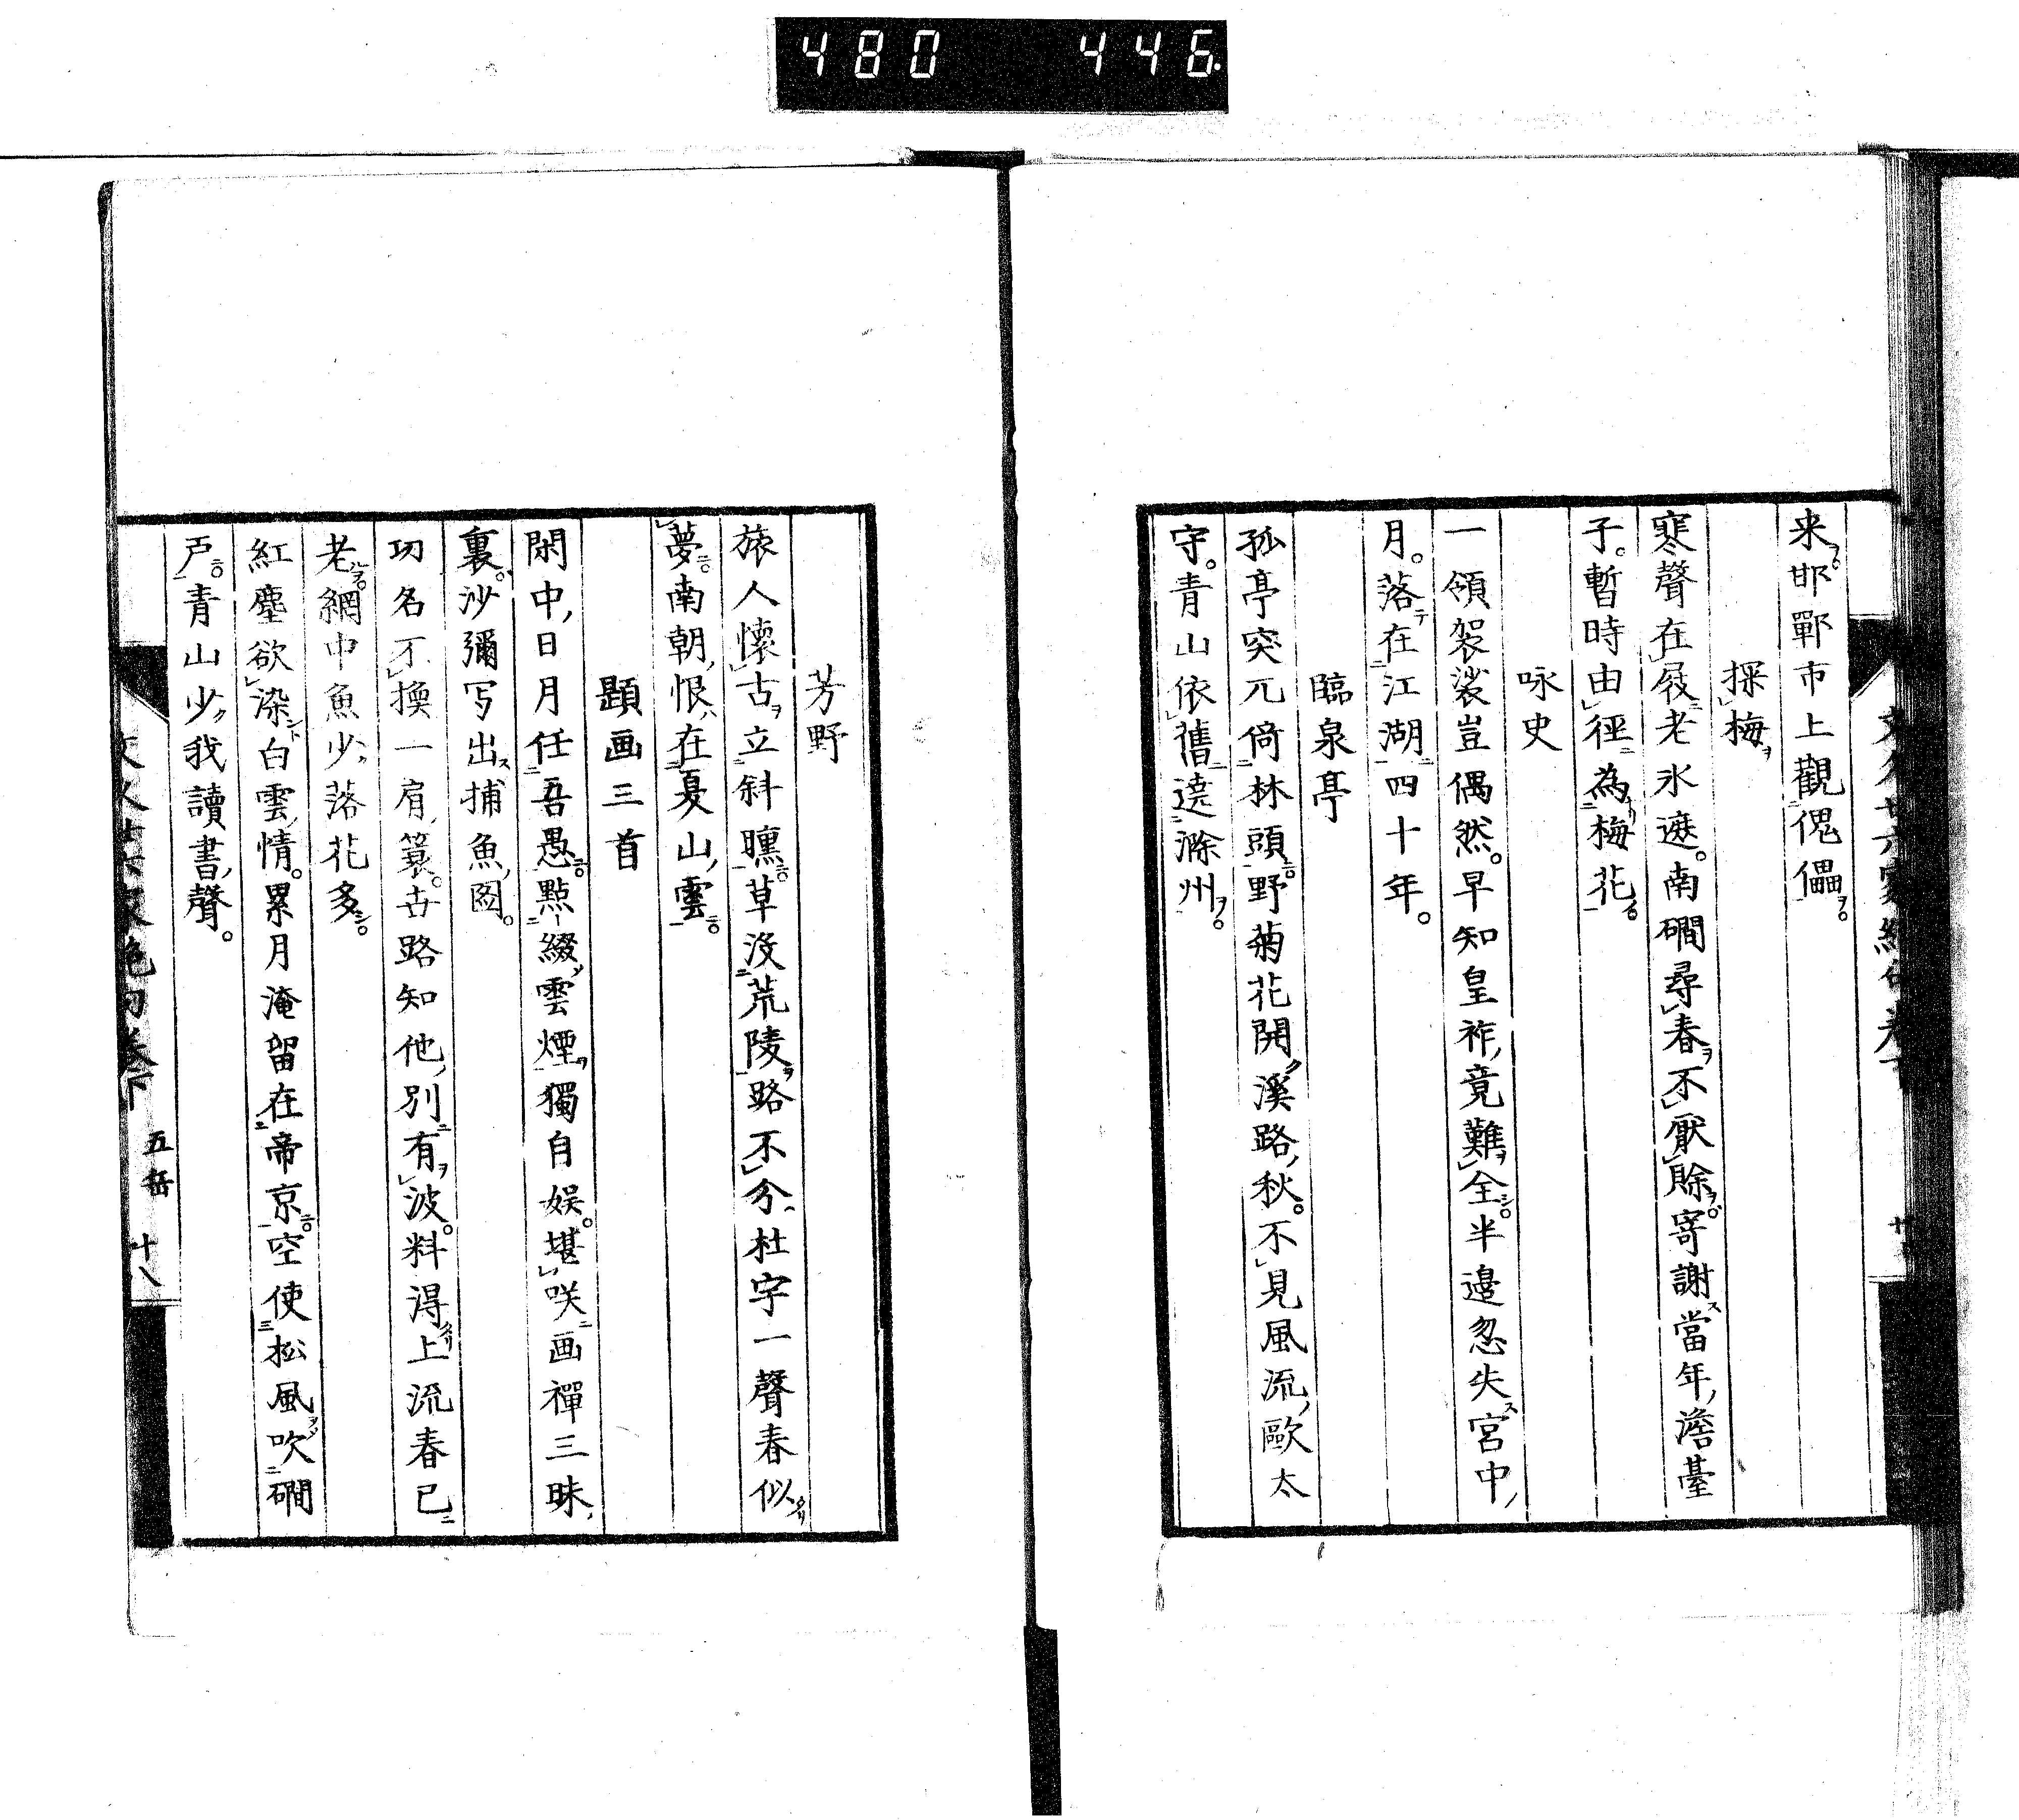 480 446
来邯鄲市上觀傀儡
探梅
寒聲在屐老氷遮南磵尋春不厭賖寄謝當年澹臺
子暫時由徑為梅花
咏史
一領袈裟豈偶然早知皇祚竟難全半邉忽失宮中
月落在江湖四十年
臨泉亭
孤亭突兀倚林頭野菊花開溪路秋不見風流歐太
守青山依舊遶滁州
芳野
旅人懷古立斜曛草沒荒陵路不分杜宇一聲春似
夢南朝恨在夏山雲
題画三首
閑中日月任吾愚點綴雲煙獨自娯堪咲画禪三昧
裏沙彌写出捕魚図
功名不換一肩簑世路知他別有波料得上流春已
老網中魚少落花多
紅塵欲染白雲情累月淹留在帝京空使松風吹磵
戸青山少我讀書聲
五岳 十八